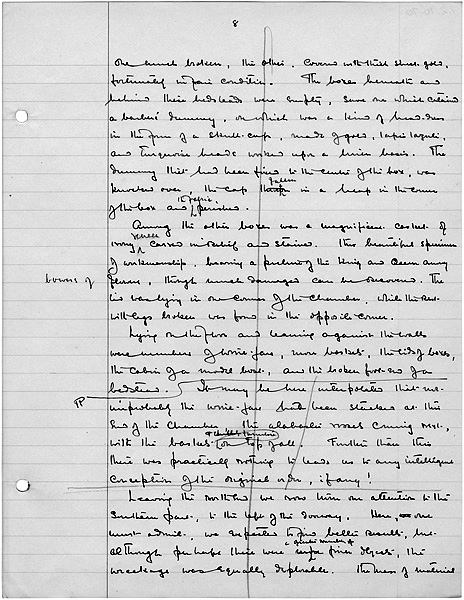 8
one much broken, the other, covered with thick sheet-gold,
fortunately in fair condition. The boxes beneath and
behind these bedsteads were empty, save one which contained
a barbers' dummy, on which was a kind of head-dress
in the form of a skull-cap, made of gold, lapis lazuli,
and turquoise beads worked upon a linen basis. The
dummy that had been fixed to the centre of the box, was
knocked over, the cap fallen in a heap in the corner
of the box and its fabric perished.
Among the other boxes was a magnificent casket of
ivory veneer carved in relief and stained. This beautiful specimen
of workmanship, bearing a picture of the King and Queen among
bowers of
flowers, though much damaged can be recovered. The
lid was lying in one corner of the Chamber, while the box
with legs broken was found in the opposite corner.
Lying on the floor and leaning against the walls
were numbers of wine-jars, more baskets, the lids of boxes,
the cabin of a model boat, and the broken fore-end of a
bedstead. It may be here interpolated that not
improbably the wine-jars had been stacked at this
end of the Chamber, the alabaster vessels coming next,
with the baskets on top of all. Further than this
there was practically nothing to lead us to any intelligent
conception of the original order, if any!
Leaving the north end we now turn our attention to the
Southern part, to the left of the doorway. Here, one
must admit, we expected to find better results, but
although perhaps there were a greater number of finer objects, the
wreckage was equally deplorable. The mass of material